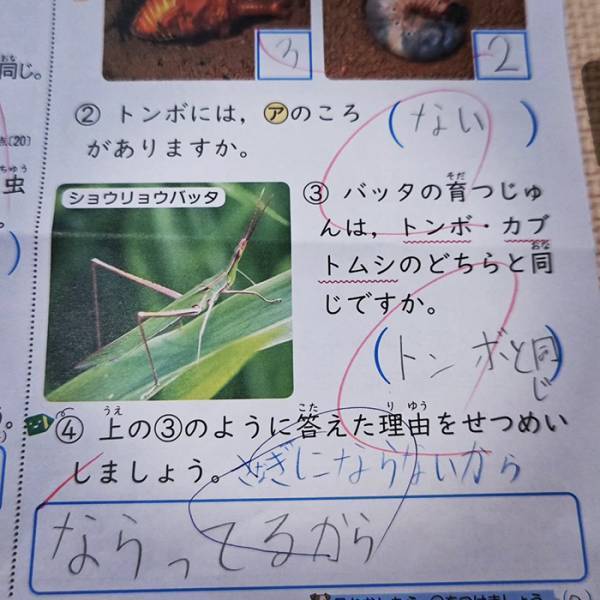 3
2
同じ。
② トンボには，㋐のころ
がありますか。
(ない)
虫
ショウリョウバッタ
③ バッタの育つじゅ
んは，トンボ・カブ
トムシのどちらと同
じですか。
(トンボと同じ)
④ 上の③のように答えた理由をせつめい
しましょう。
さなぎにならないから
ならってるから